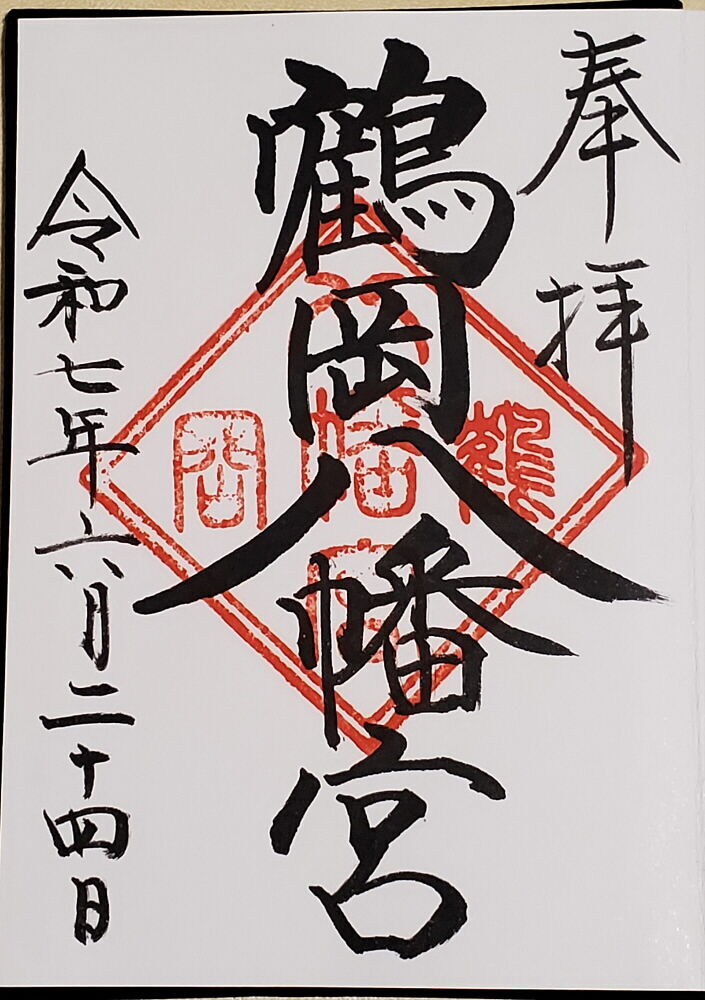 奉拝
鶴岡八幡宮
令和七年六月二十四日
鶴
八幡宮
岡